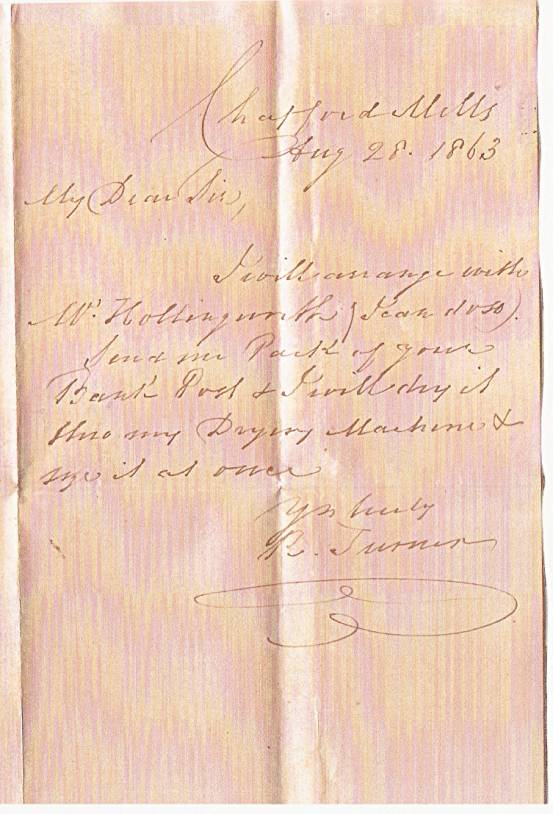 Chafford Mills
Aug 28. 1863
My Dear Sir,
I will arrange with
Mr. Hollingworth (I can do so).
Send me Pack of your
Bank Post & I will dry it
thro my Drying Machine &
size it at once
Yrs truly
R. Turner